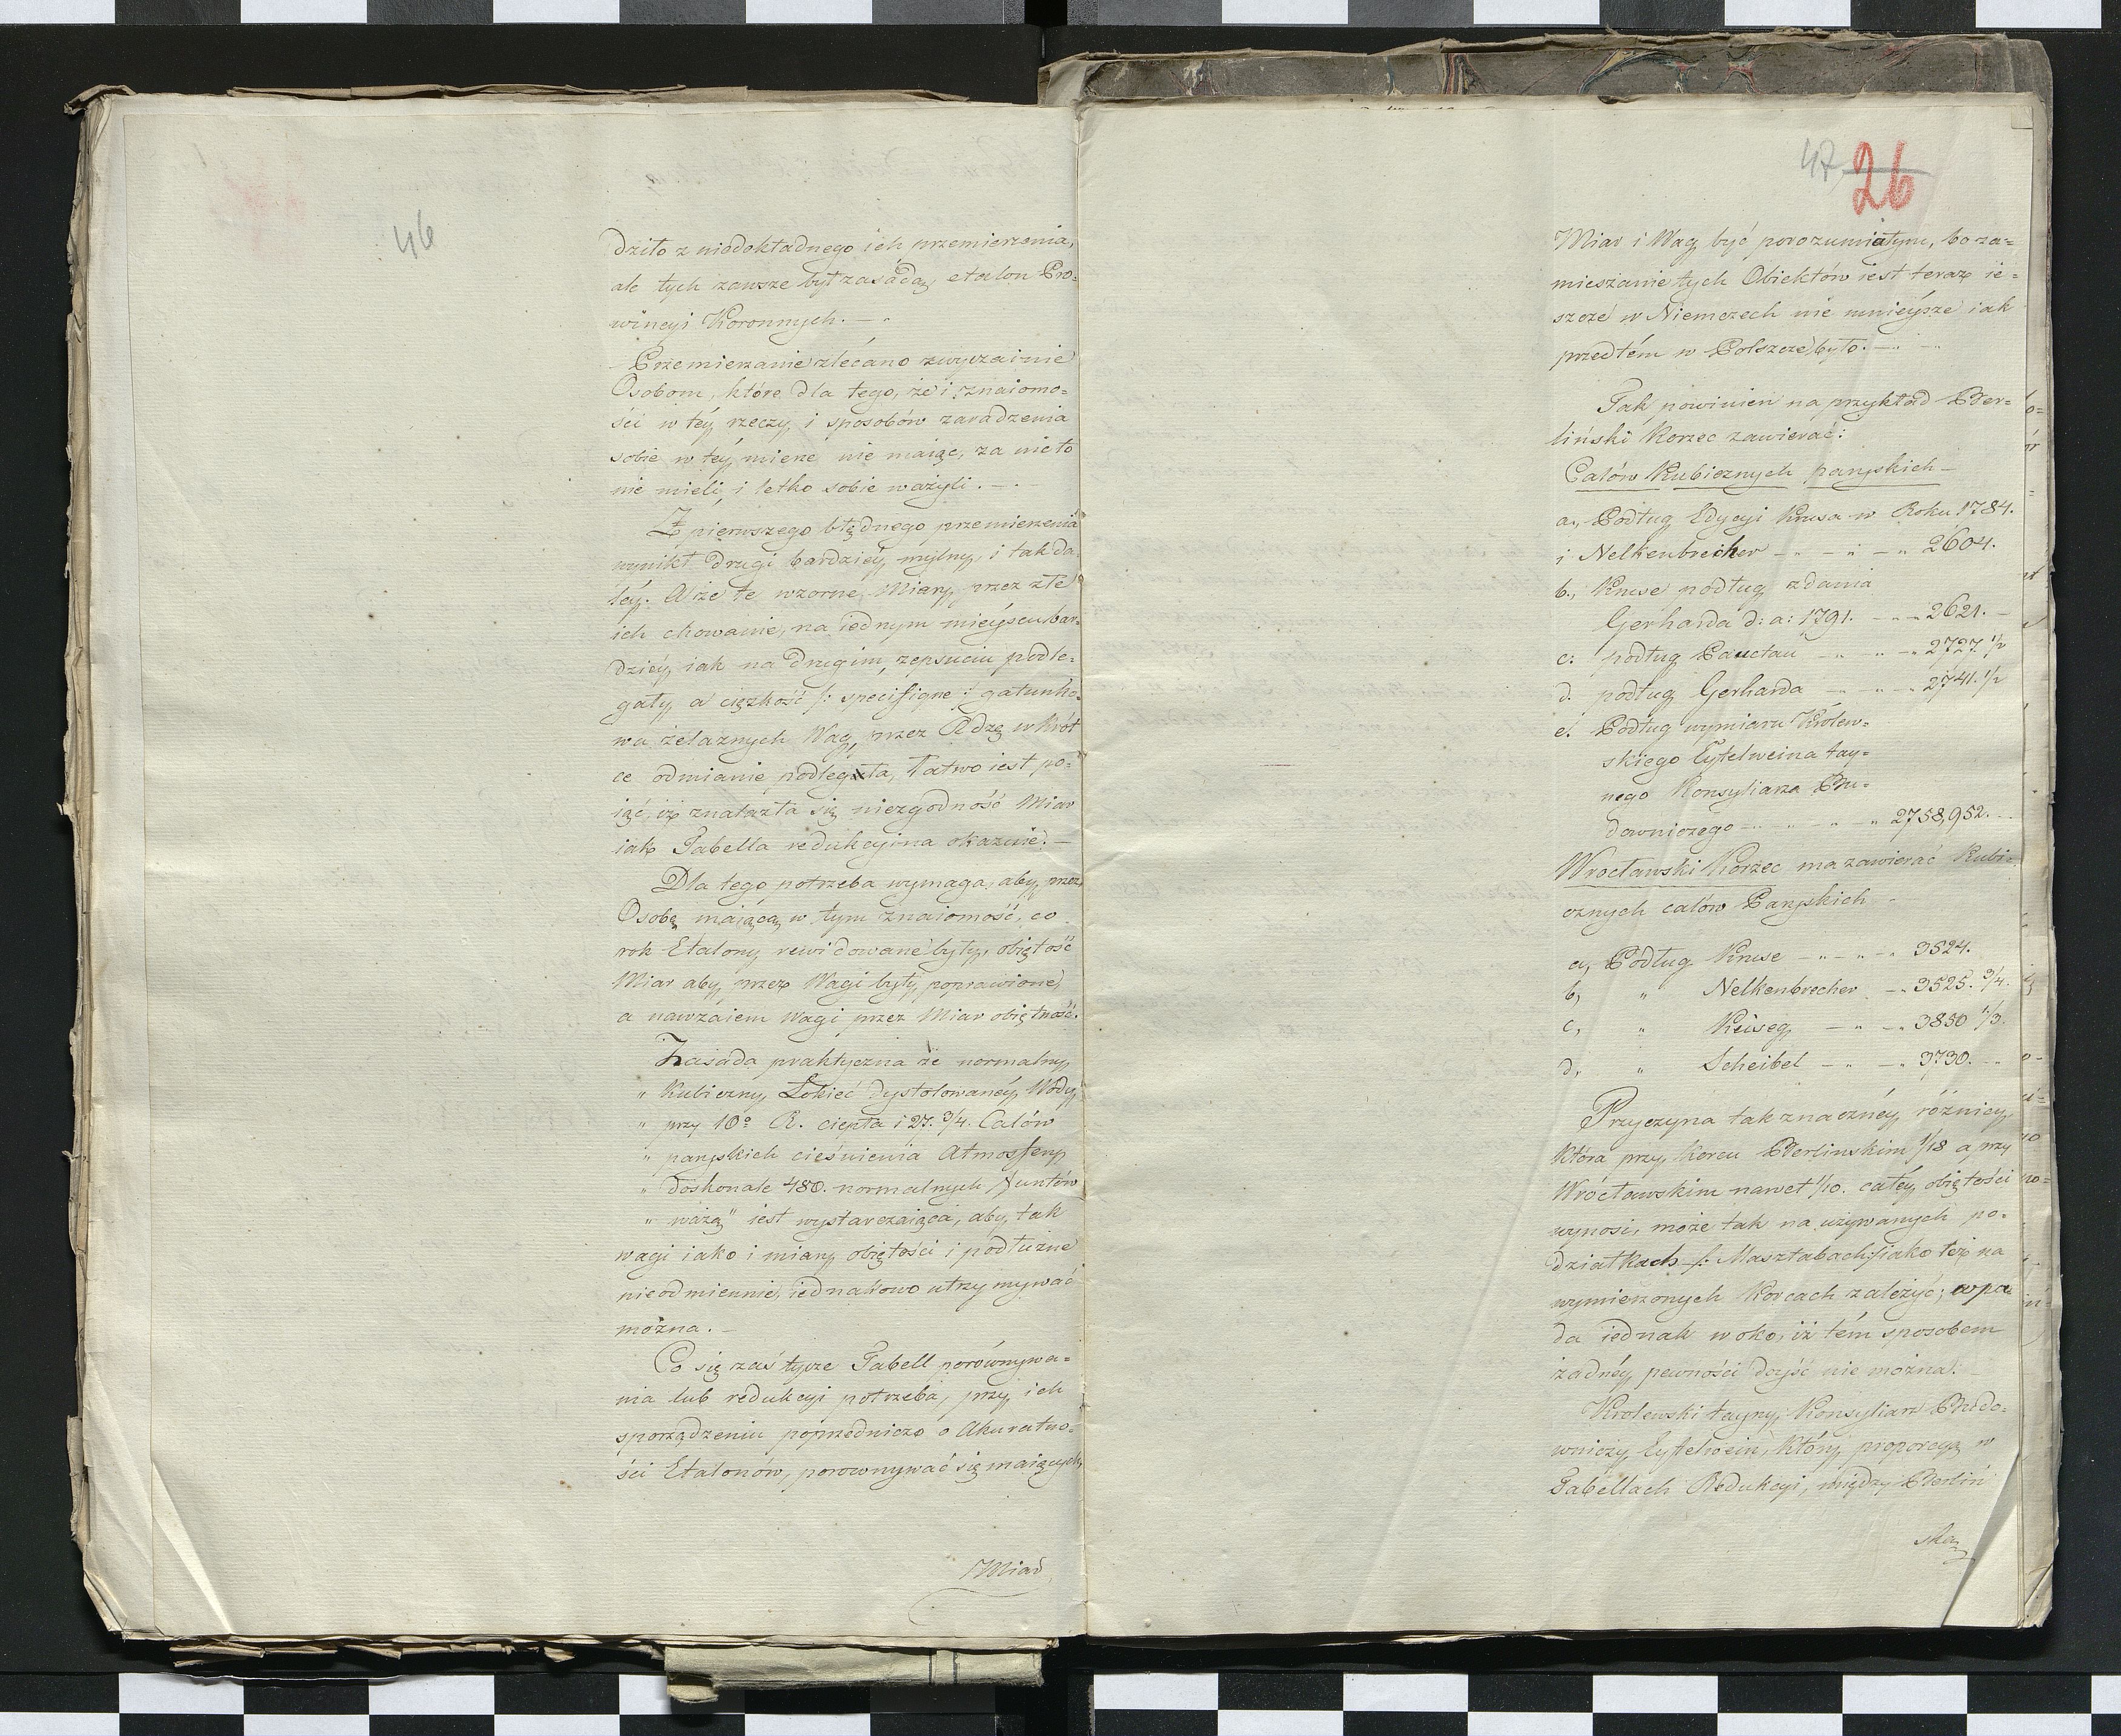 46
dziło z niedokładnego ich przemierzenia,
ale tych zawsze był zasadą etalon Pro=
wincyi Koronnych. —
Przemierzanie zlecano zwyczainie
Osobom, które dla tego, że i znaiomo=
ści w téy rzeczy i sposobów zaradzenia
sobie w téy mierze nie maiąc, za nic to
nie mieli, i letko sobie ważyli. —
Z pierwszego błędnego przemierzenia
wynikł drugi bardziéy mylny, i tak da=
léy. A że te wzorne Miary przez złe
ich chowanie, na iednym mieyscu bar=
dziéy iak na drugim, zepsuciu podle=
gały, a ciężkość /: specifique :/ gatunko=
wa żelaznych Wag, przez Rdzę wkrót
ce odmianie podlegała, Łatwo iest po=
iąć, iż znalazła się niezgodność Miar
iak Tabella redukcyina okazuie. —
Dla tego potrzeba wymaga, aby przez
Osobę maiącą w tym znaiomość, co
rok Etalony rewidowane były, obiętość
Miar aby przez Wagi były poprawione,
a nawzaiem Wagi przez Miar obiętość.
Zasada praktyczna że normalny
" Kubiczny Łokieć dystolowanéy Wody,
" przy 10° R. ciepła i 27. 3/4. Calów
" paryskich ciśnienia Atmosfery
" doskonale 480. normalnych Funtów
" ważą" iest wystarczaiąca, aby tak
wagi iako i miary obiętości i podłużne
nieodmiennie, iednakowo utrzymywać
można. —
Co się zaś tycze Tabell porównywa=
nia lub redukcyi potrzeba, przy ich
sporządzeniu poprzedniczo o Akuratno=
ści Etalonów, porownywać się maiących,
Miar
47 26
Miar i Wag być porozumiałym, bo za=
mieszanie tych Obiektów iest teraz ie=
szcze w Niemczech nie mnieysze iak
przedtém w Polszcze było. —
Tak powinien na przykład Ber=
liński Korzec zawierać:
Calów Kubicznych paryskich —
a., Podług Edycyi Krusa w Roku 1784.
i Nelkenbrecher — " — " — " 2604.
b., Kruse podług zdania
Gerharda d: a: 1791. — " — 2621. —
c: podług Pauctau — " — " — " 2727 1/2
d. podług Gerharda — " — " — " 2741. 1/2
e. Podług wymiaru Królew=
skiego Eytelweina tay=
nego Konsyliarza Bu=
downiczego — " — " — " — " 2758,952. —
Wrocławski Korzec ma zawierać Kubi=
cznych calów Paryskich —
a, Podług Kruse — " — " — " 3524.
b, " Nelkenbrecher — " 3525. 3/4.
c, " Keiseg — " — " 3830 1/3.
d, " Scheibel — " — " 3730. —
Przyczyna tak znacznéy różnicy
Która przy Korcu Berlinskim 1/18 a przy
Wrocławskim nawet 1/10. całéy obiętości
wynosi, może tak na używanych po=
działkach /: Masztabach :/ iako też na
wymierzonych Korcach zależyć; wpa
da iednak w oko, iż tém sposobem
żadnéy pewności doyść nie można. —
Krolewski tayny Konsyliarz Budo=
wniczy Eytelwein, który proporcyą w
Tabellach Redukcyi, między Berliń
ską